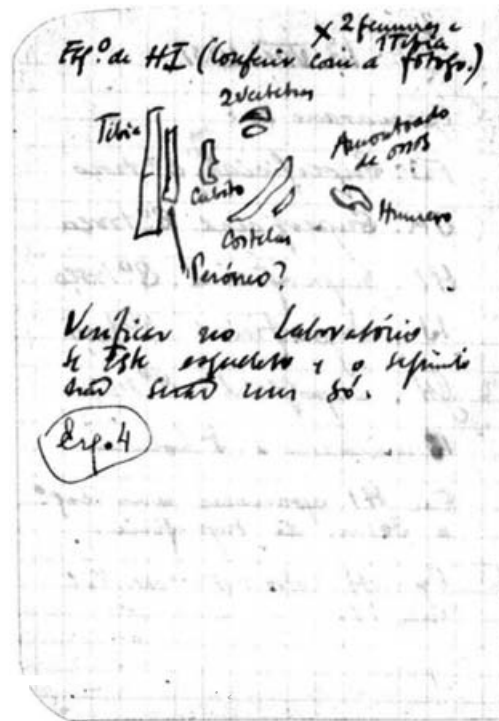 x 2 femures e
1 Tibia
Esq.º de HI (Conferir com a fotogr.)
2 vertebras
Tibia
Amontoado
de ossos
Cubito
Humero
Costelas
Peróneo?
Verificar no Laboratório
se Este esqueleto e o seguinte
não serão um só.
Esq. 4